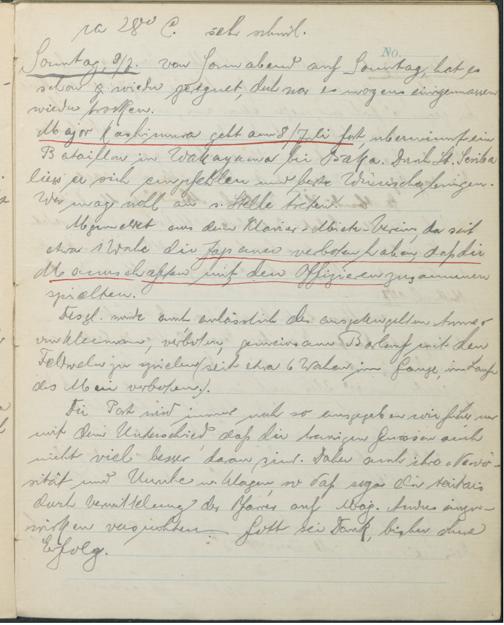 ca 28° C. sehr schwül.
No.
Sonntag, 9/7. von Sonnabend auf Sonntag, hat es
schon wieder geregnet, doch war es morgens einigermassen
wieder trocken.
Major Kashimura geht am 8/7 fort, übernimmt ein
Bataillon in Wakayama bei Osaka. Durch Lt.
liess er sich empfehlen und beste Wünsche
Wer mag wohl an s. Stelle treten.
Abgemeldet aus dem Klavier-Miete-Verein, da seit
etwa 1 Woche die Japaner verboten haben, daß die
Mannschaften mit den Offizieren zusammen
spielten.
Desgl. wurde auch anlässlich des
verboten, gemeinsam mit den
Feldwebeln zu spielen (seit etwa 6 Wochen im Gange, im Laufe
des Mai verboten).
Die Post wird immer noch so ausgegeben wie früher, nur
mit dem Unterschied, daß die
nicht viel besser daran sind. Daher auch ihre Nervo-
sität und Unruhe
durch Vermittelung des Pfarrers auf Maj.
versuchten Gott sei Dank, bisher ohne
Erfolg.